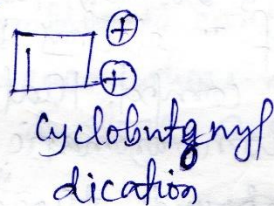 ⊕
⊕
cyclobutenyl
dication